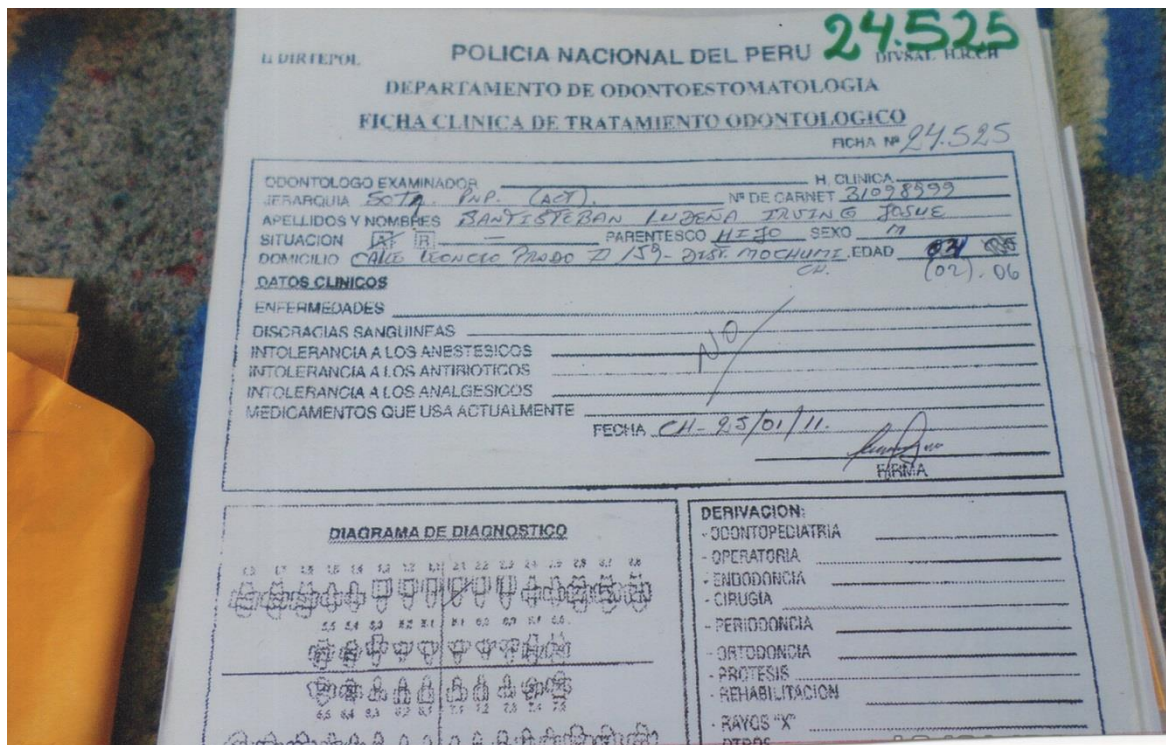 II DIRTEPOL POLICIA NACIONAL DEL PERU 24.525
DIVSAL H.R.CH
DEPARTAMENTO DE ODONTOESTOMATOLOGIA
FICHA CLINICA DE TRATAMIENTO ODONTOLOGICO
FICHA Nº 24.525
ODONTOLOGO EXAMINADOR H. CLINICA
JERARQUIA SOT2. PNP. (ACT). Nº DE CARNET 31098999
APELLIDOS Y NOMBRES SANTISTEBAN LUDEÑA IRVING JOSUE
SITUACION A R - PARENTESCO HIJO SEXO M
DOMICILIO CALLE LEONCIO PRADO # 159- DIST. MOCHUMI. EDAD
CH. (02). 06
DATOS CLINICOS
ENFERMEDADES
DISCRACIAS SANGUINEAS
NO
INTOLERANCIA A LOS ANESTESICOS
INTOLERANCIA A LOS ANTIBIOTICOS
INTOLERANCIA A LOS ANALGESICOS
MEDICAMENTOS QUE USA ACTUALMENTE
FECHA CH- 25/01/11.
FIRMA
DIAGRAMA DE DIAGNOSTICO
DERIVACION:
- ODONTOPEDIATRIA
- OPERATORIA
- ENDODONCIA
- CIRUGIA
- PERIODONCIA
- ORTODONCIA
- PROTESIS
- REHABILITACION
- RAYOS "X"
OTROS